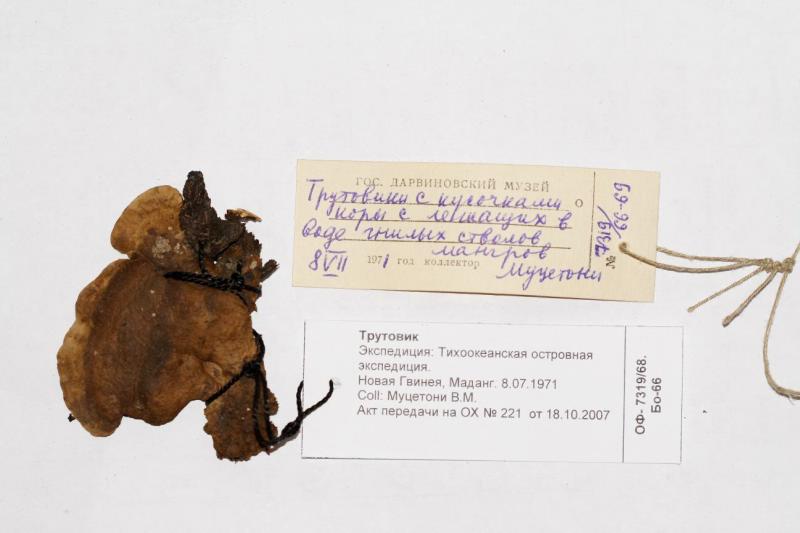 ГОС. ДАРВИНОВСКИЙ МУЗЕЙ
Трутовики с кусочками
коры с лежащих в
воде гнилых стволов
мангров
8 VII 1971 год коллектор Муцетони
№ 7319/66-69
Трутовик
Экспедиция: Тихоокеанская островная
экспедиция.
Новая Гвинея, Маданг. 8.07.1971
Coll: Муцетони В.М.
Акт передачи на ОХ № 221 от 18.10.2007
ОФ- 7319/68.
Бо-66